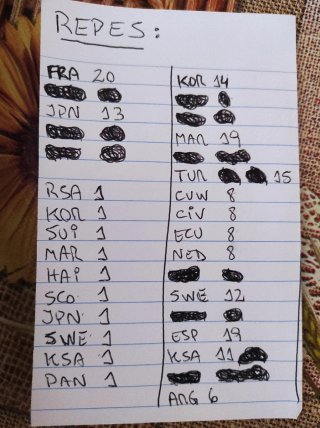 REPES:
FRA 20
JPN 13
RSA 1
KOR 1
SUI 1
MAR 1
HAI 1
SCO 1
JPN 1
SWE 1
KSA 1
PAN 1
KOR 14
MAR 19
TUR 15
CUW 8
CIV 8
ECU 8
NED 8
SWE 12
ESP 19
KSA 11
ARG 6